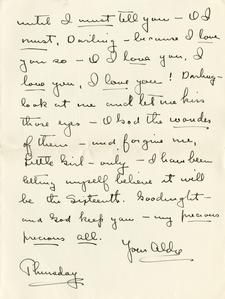 until I must tell you – O I
must, Darling – because I love
you so – O I love you, I
love you, I love you! Darling –
look at me and let me kiss
those eyes – O God the wonder
of them – and, forgive me,
Little Girl – only – I have been
letting myself believe it will
be the Sixteenth. Goodnight –
and God keep you – my precious
precious all.
Your
Thursday